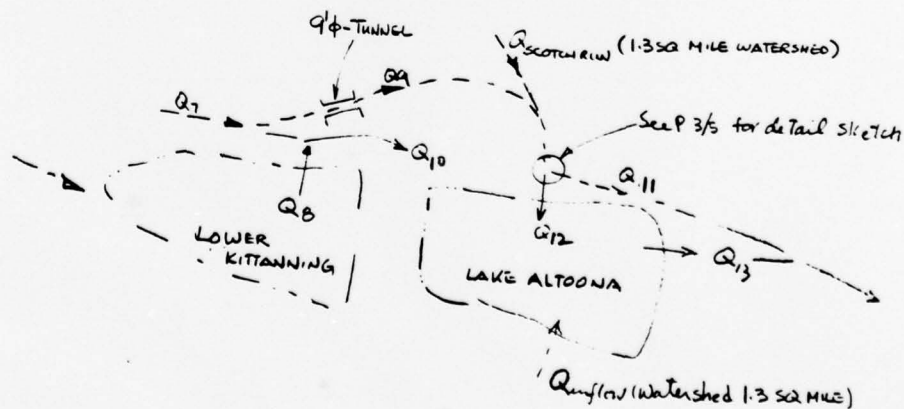 9'φ-TUNNEL
Q SCOTCH RUN (1.3 SQ MILE WATERSHED)
Q9
Q7
See P 3/5 for detail sketch
Q10
Q11
Q8
Q12
LOWER
KITTANNING
Q13
LAKE ALTOONA
Q inflow (Watershed 1.3 SQ MILE)